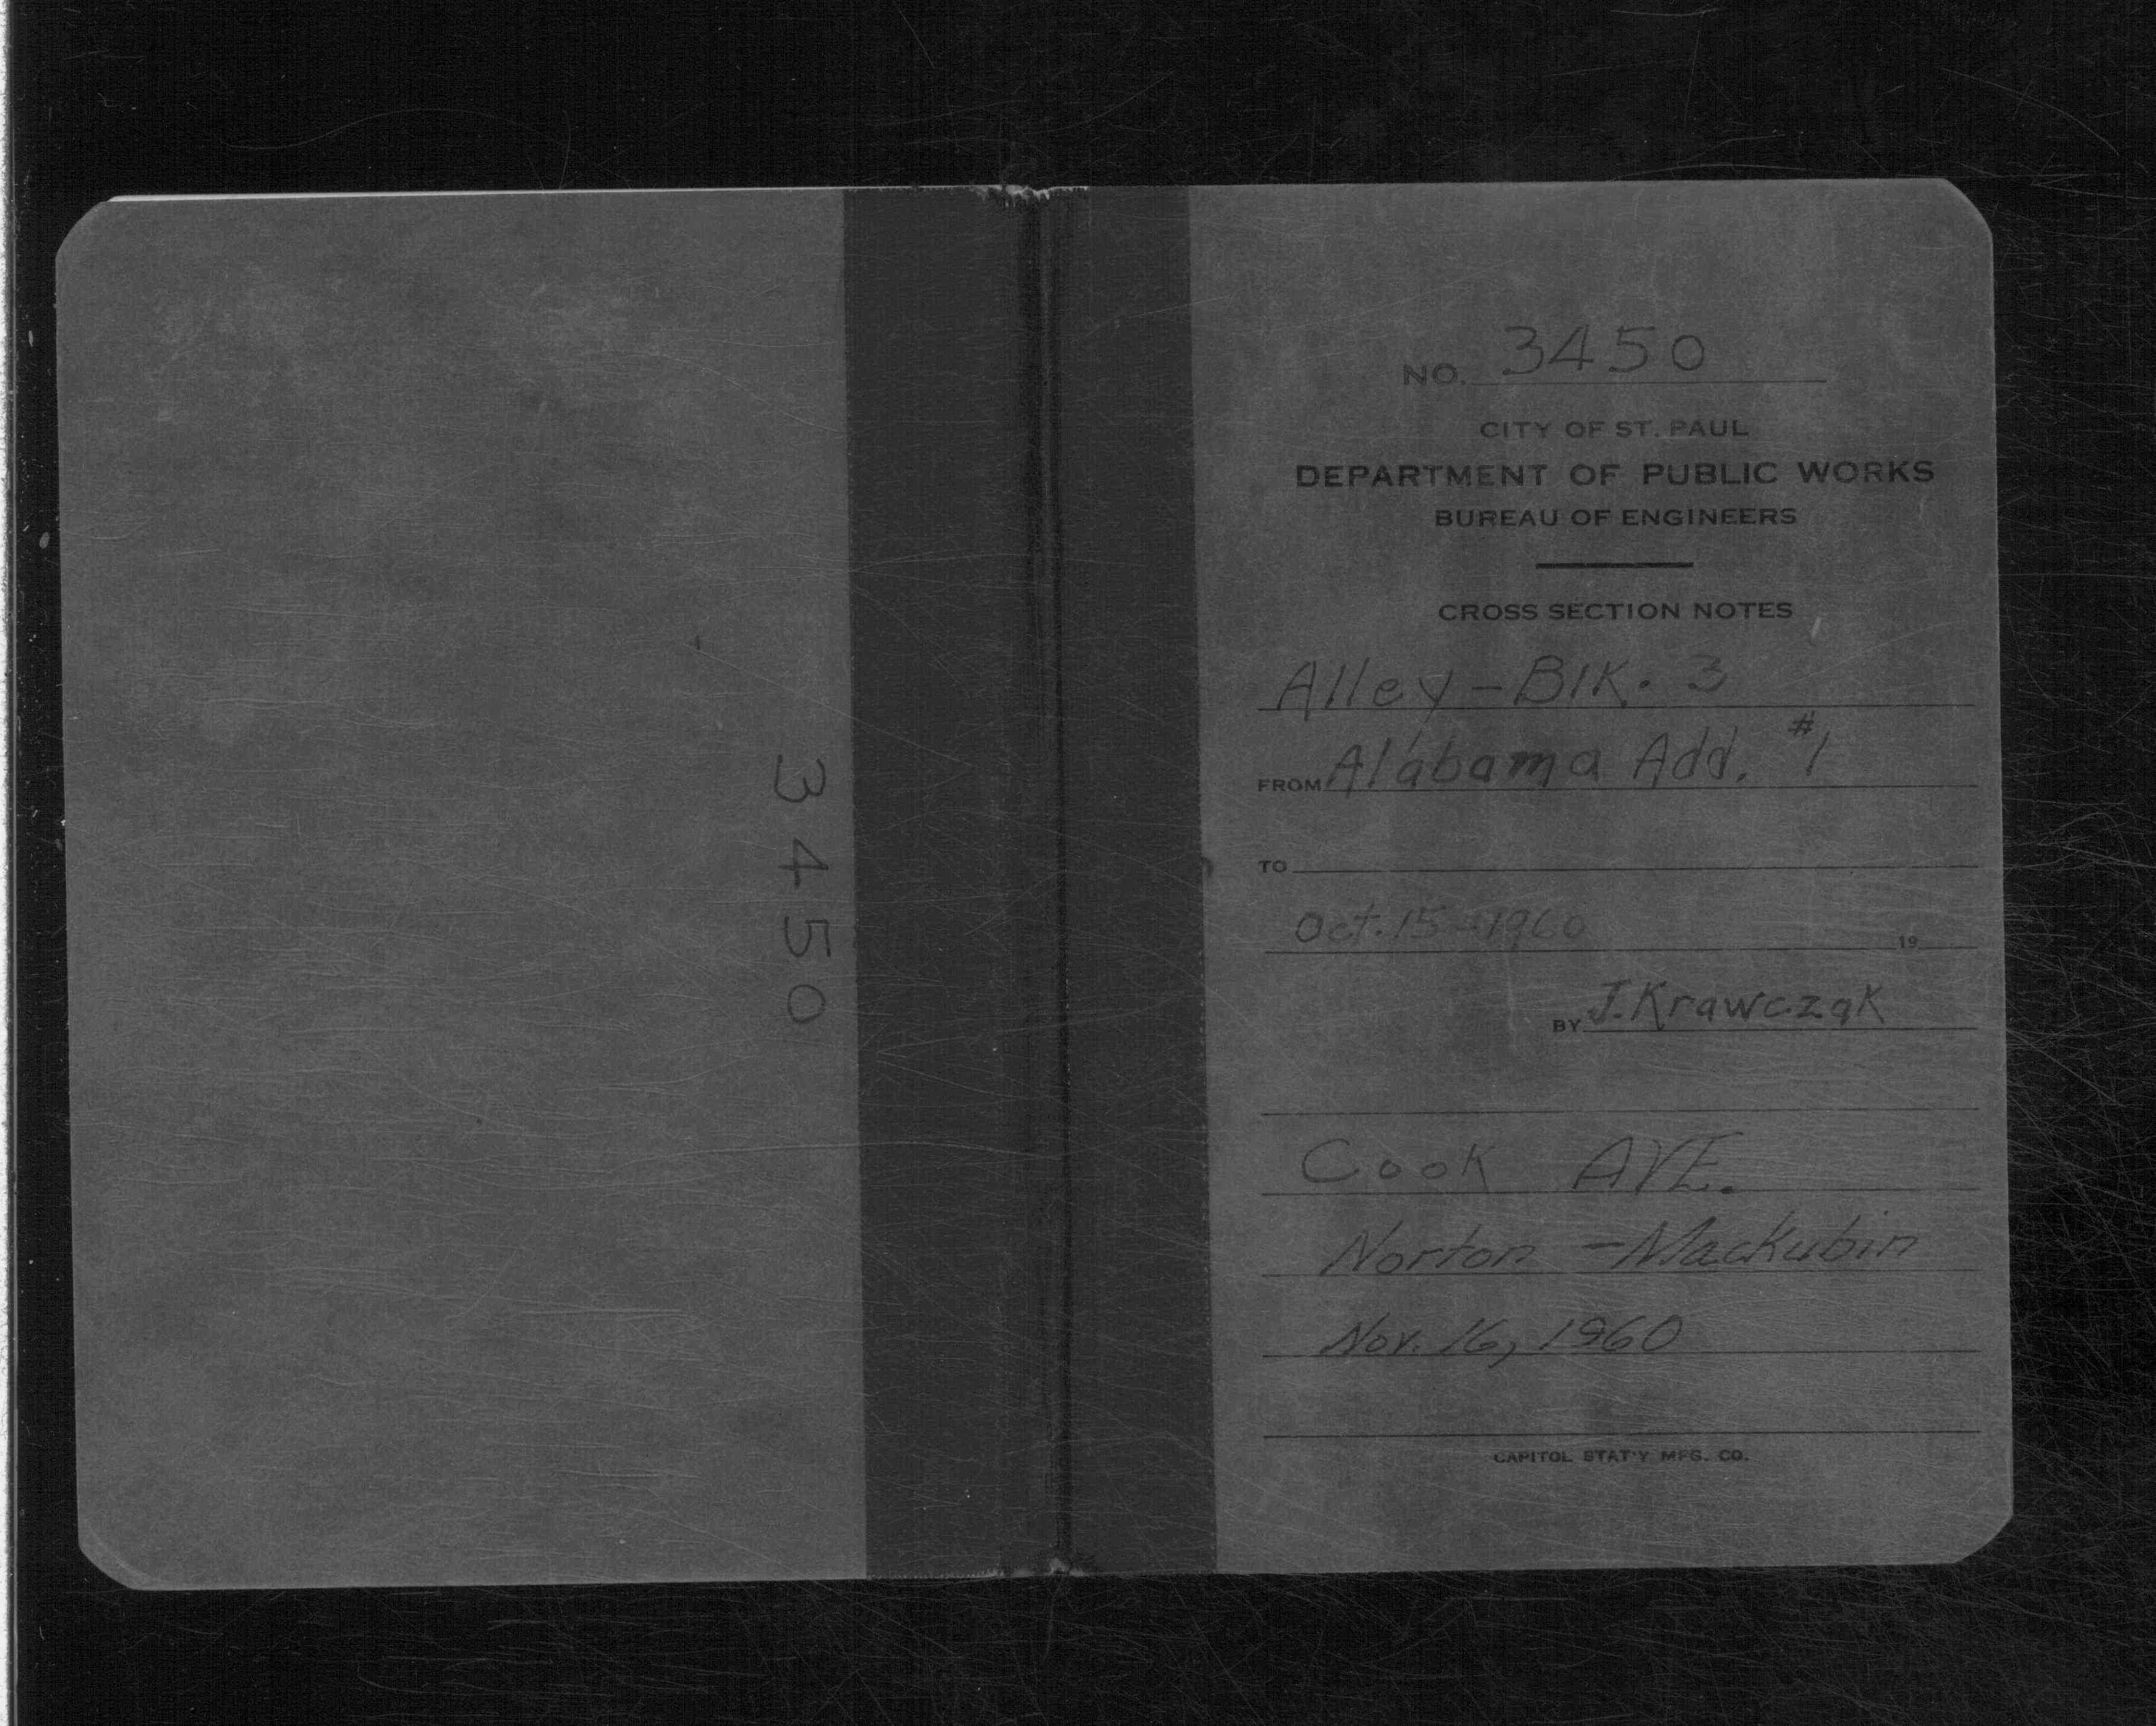 3450
NO. 3450
CITY OF ST. PAUL
DEPARTMENT OF PUBLIC WORKS
BUREAU OF ENGINEERS
CROSS SECTION NOTES
Alley - Blk. 3
FROM Alabama Add. #1
TO
Oct. 15 - 1960 19
BY J. Krawczak
Cook AVE.
Norton - Mackubin
Nov. 16, 1960
CAPITOL STAT'Y MFG. CO.